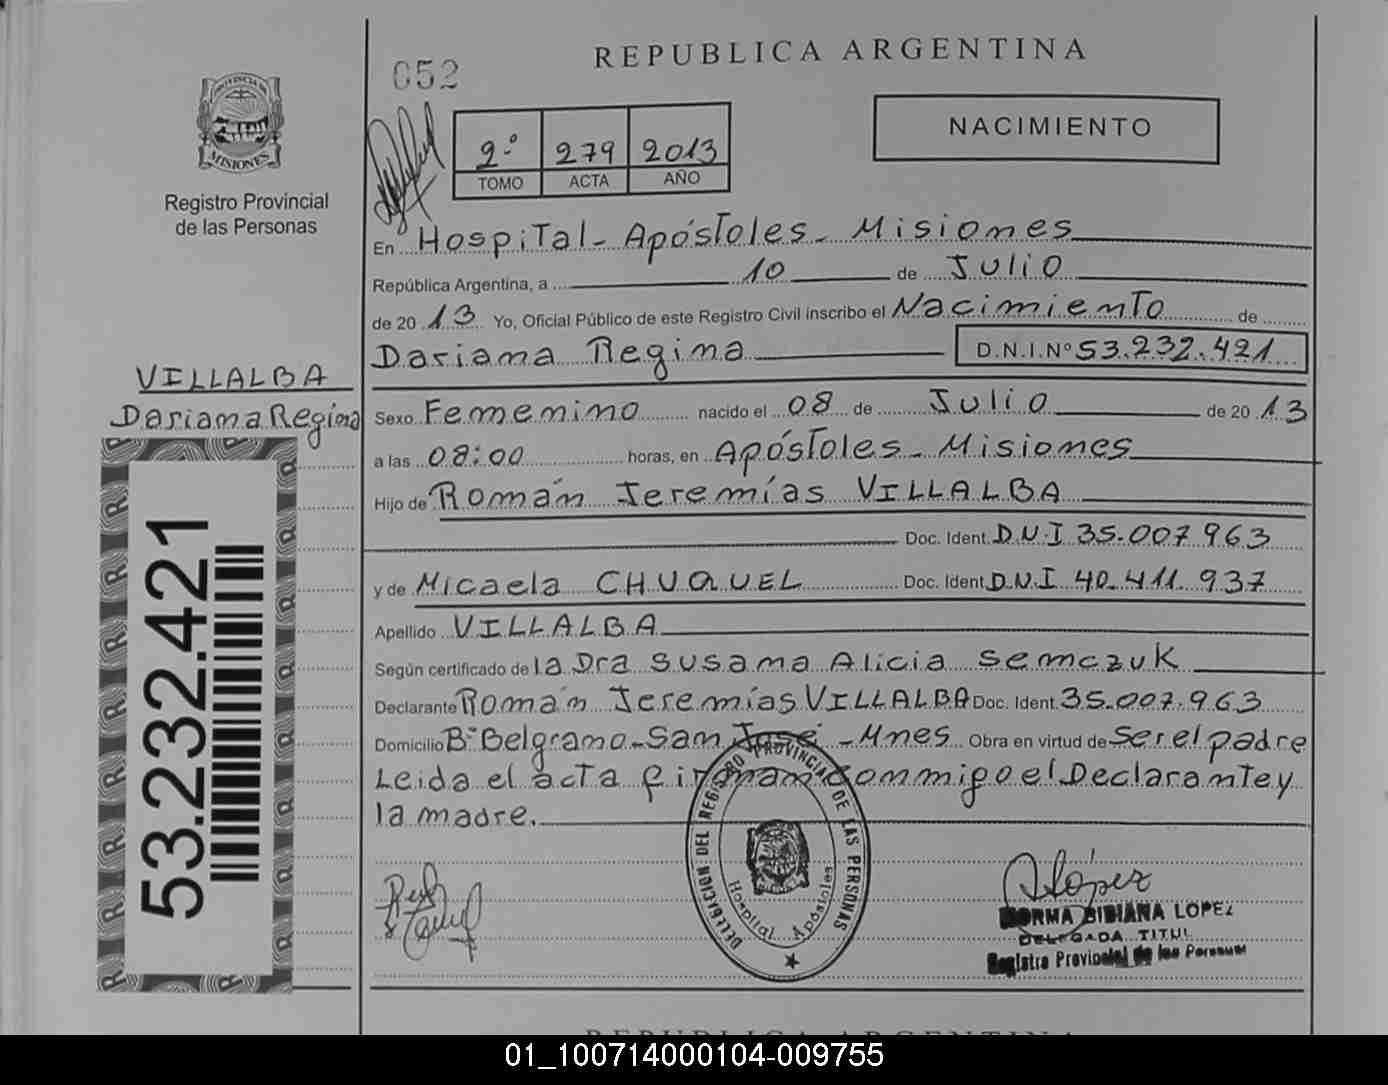 052
REPUBLICA ARGENTINA
PROVINCIA DE
MISIONES
Registro Provincial
de las Personas
2º 279 2013
TOMO ACTA AÑO
NACIMIENTO
En Hospital - Apóstoles - Misiones
República Argentina, a 10 de Julio
de 2013 Yo, Oficial Público de este Registro Civil inscribo el Nacimiento de
Dariana Regina D.N.I.Nº 53.232.421
VILLALBA
Dariana Regina
Sexo Femenino nacido el 08 de Julio de 2013
a las 08:00 horas, en Apóstoles - Misiones
Hijo de Román Jeremías VILLALBA
Doc. Ident. D.N.I 35.007.963
y de Micaela CHUQUEL Doc. Ident. D.N.I 40.411.937
Apellido VILLALBA
Según certificado de la Dra Susana Alicia Semczuk
Declarante Román Jeremías VILLALBA Doc. Ident. 35.007.963
Domicilio Bº Belgrano - San José - Mnes Obra en virtud de Ser el padre
Leida el acta firman conmigo el Declarante y
la madre.
53.232.421
DELEGACION DEL REGISTRO PROVINCIAL DE LAS PERSONAS
Hospital Apóstoles
López
NORMA BIBIANA LOPEZ
DELEGADA TITUL
Registro Provincial de las Personas
REPUBLICA ARGENTINA
01_100714000104-009755